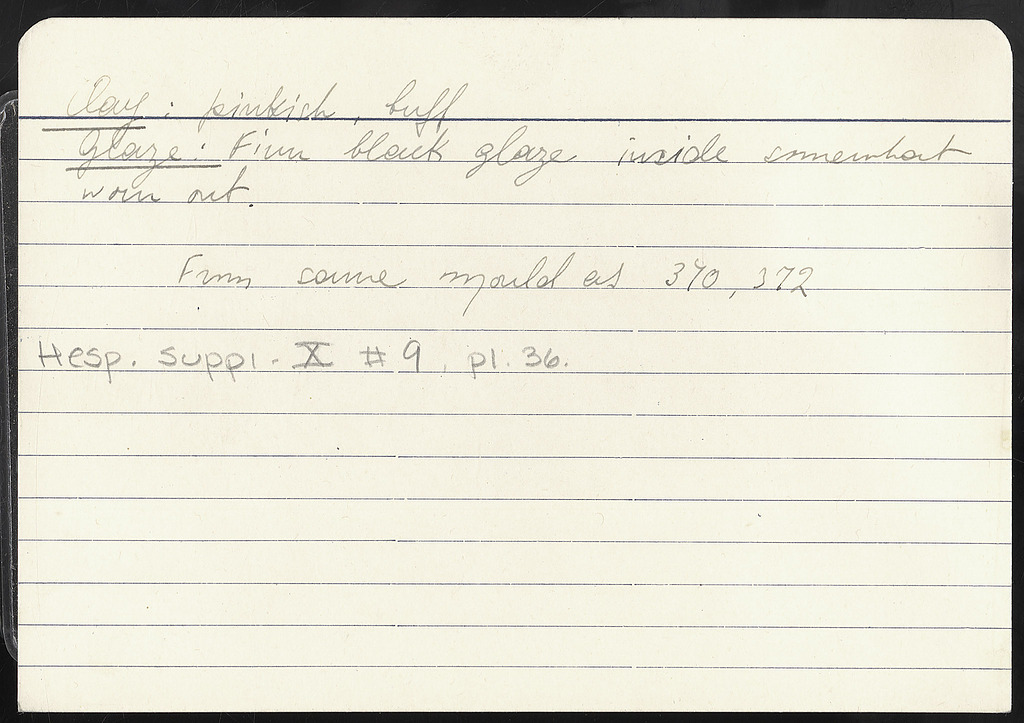 Clay: pinkish, buff
Glaze: Firm black glaze inside somewhat
worn out.
From same mould as 370, 372
Hesp. suppl. X #9, pl. 36.